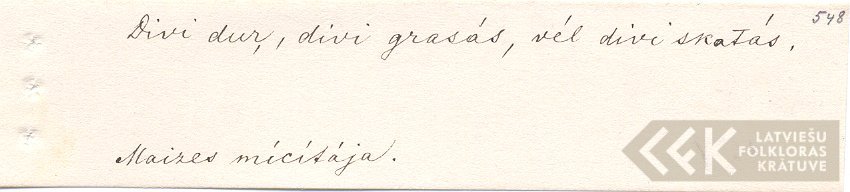 548
Divi duŗ, divi grasás, vél divi skatás.
Maizes mícítája.
LATVIEŠU
FOLKLORAS
KRĀTUVE